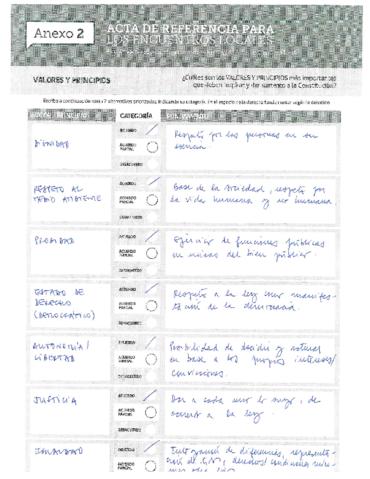 Anexo 2
ACTA DE REFERENCIA PARA
LOS ENCUENTROS LOCALES
VALORES Y PRINCIPIOS
¿Cuáles son los VALORES Y PRINCIPIOS más importantes
que deben inspirar y dar sustento a la Constitución?
CATEGORÍA
DIGNIDAD
ACUERDO
ACUERDO PARCIAL
DESACUERDO
Respeto por las personas en su
esencia.
RESPETO AL
MEDIO AMBIENTE
ACUERDO
ACUERDO PARCIAL
DESACUERDO
Base de la sociedad, respeto por
la vida humana y no humana.
PROBIDAD
ACUERDO
ACUERDO PARCIAL
DESACUERDO
Ejercicio de funciones públicas
en miras del bien público.
ESTADO DE
DERECHO
(DEMOCRÁTICO)
ACUERDO
ACUERDO PARCIAL
DESACUERDO
Respeto a la ley como manifes-
tación de la democracia.
AUTONOMÍA/
LIBERTAD
ACUERDO
ACUERDO PARCIAL
DESACUERDO
Posibilidad de decidir y actuar
en base a los propios intereses/
convicciones.
JUSTICIA
ACUERDO
ACUERDO PARCIAL
DESACUERDO
Dar a cada uno lo suyo, de
acuerdo a la ley.
IGUALDAD
ACUERDO
ACUERDO PARCIAL
Integración de diferencias,